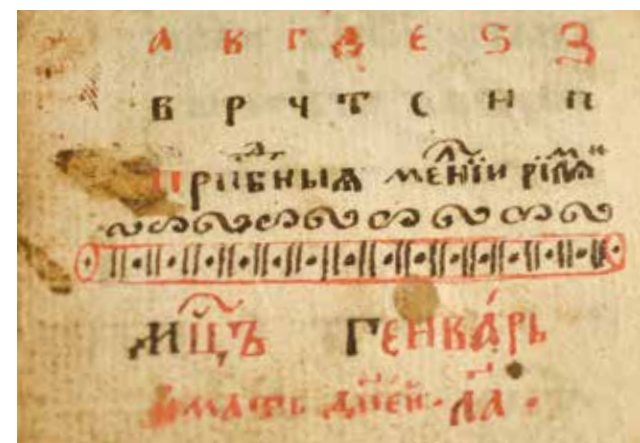 А В Г Д Е Ѕ З
В Р Ч Т С Н П
Прпⷣбныѧ меⷧнїи
Мц҃ъ Генва́рь
Имать дн҃ей · л҃а ·